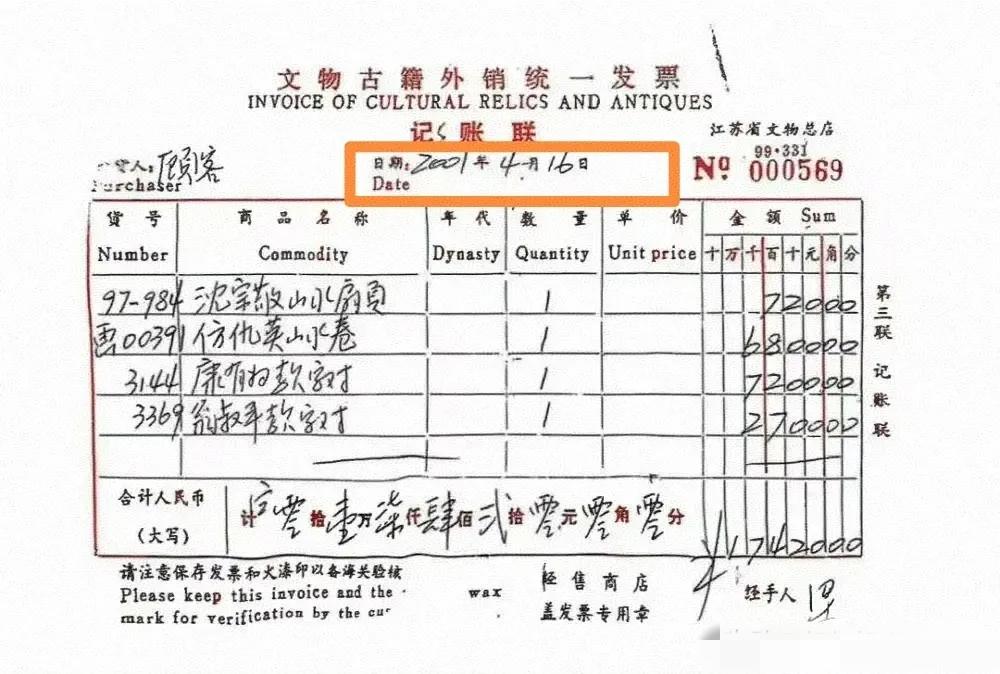 文物古籍外销统一发票
INVOICE OF CULTURAL RELICS AND ANTIQUES
记账联
江苏省文物总店
99·331
Nº 000569
货人：顾客
Purchaser
日期：2001年4月16日
Date
货号 商品名称 年代 数量 单价 金额 Sum
Number Commodity Dynasty Quantity Unit price 十万千百十元角分
97-984 沈宗敬山水扇页 1 72000
画00391 仿仇英山水卷 1 680000
3144 康有为款字对 1 720000
3369 翁叔平款字对 1 270000
第三联 记账联
合计人民币
(大写)
计 零拾壹万柒仟肆佰贰拾零元零角零分 1742000
请注意保存发票和火漆印以备海关验核
Please keep this invoice and the wax
mark for verification by the
经售商店
盖发票专用章
经手人